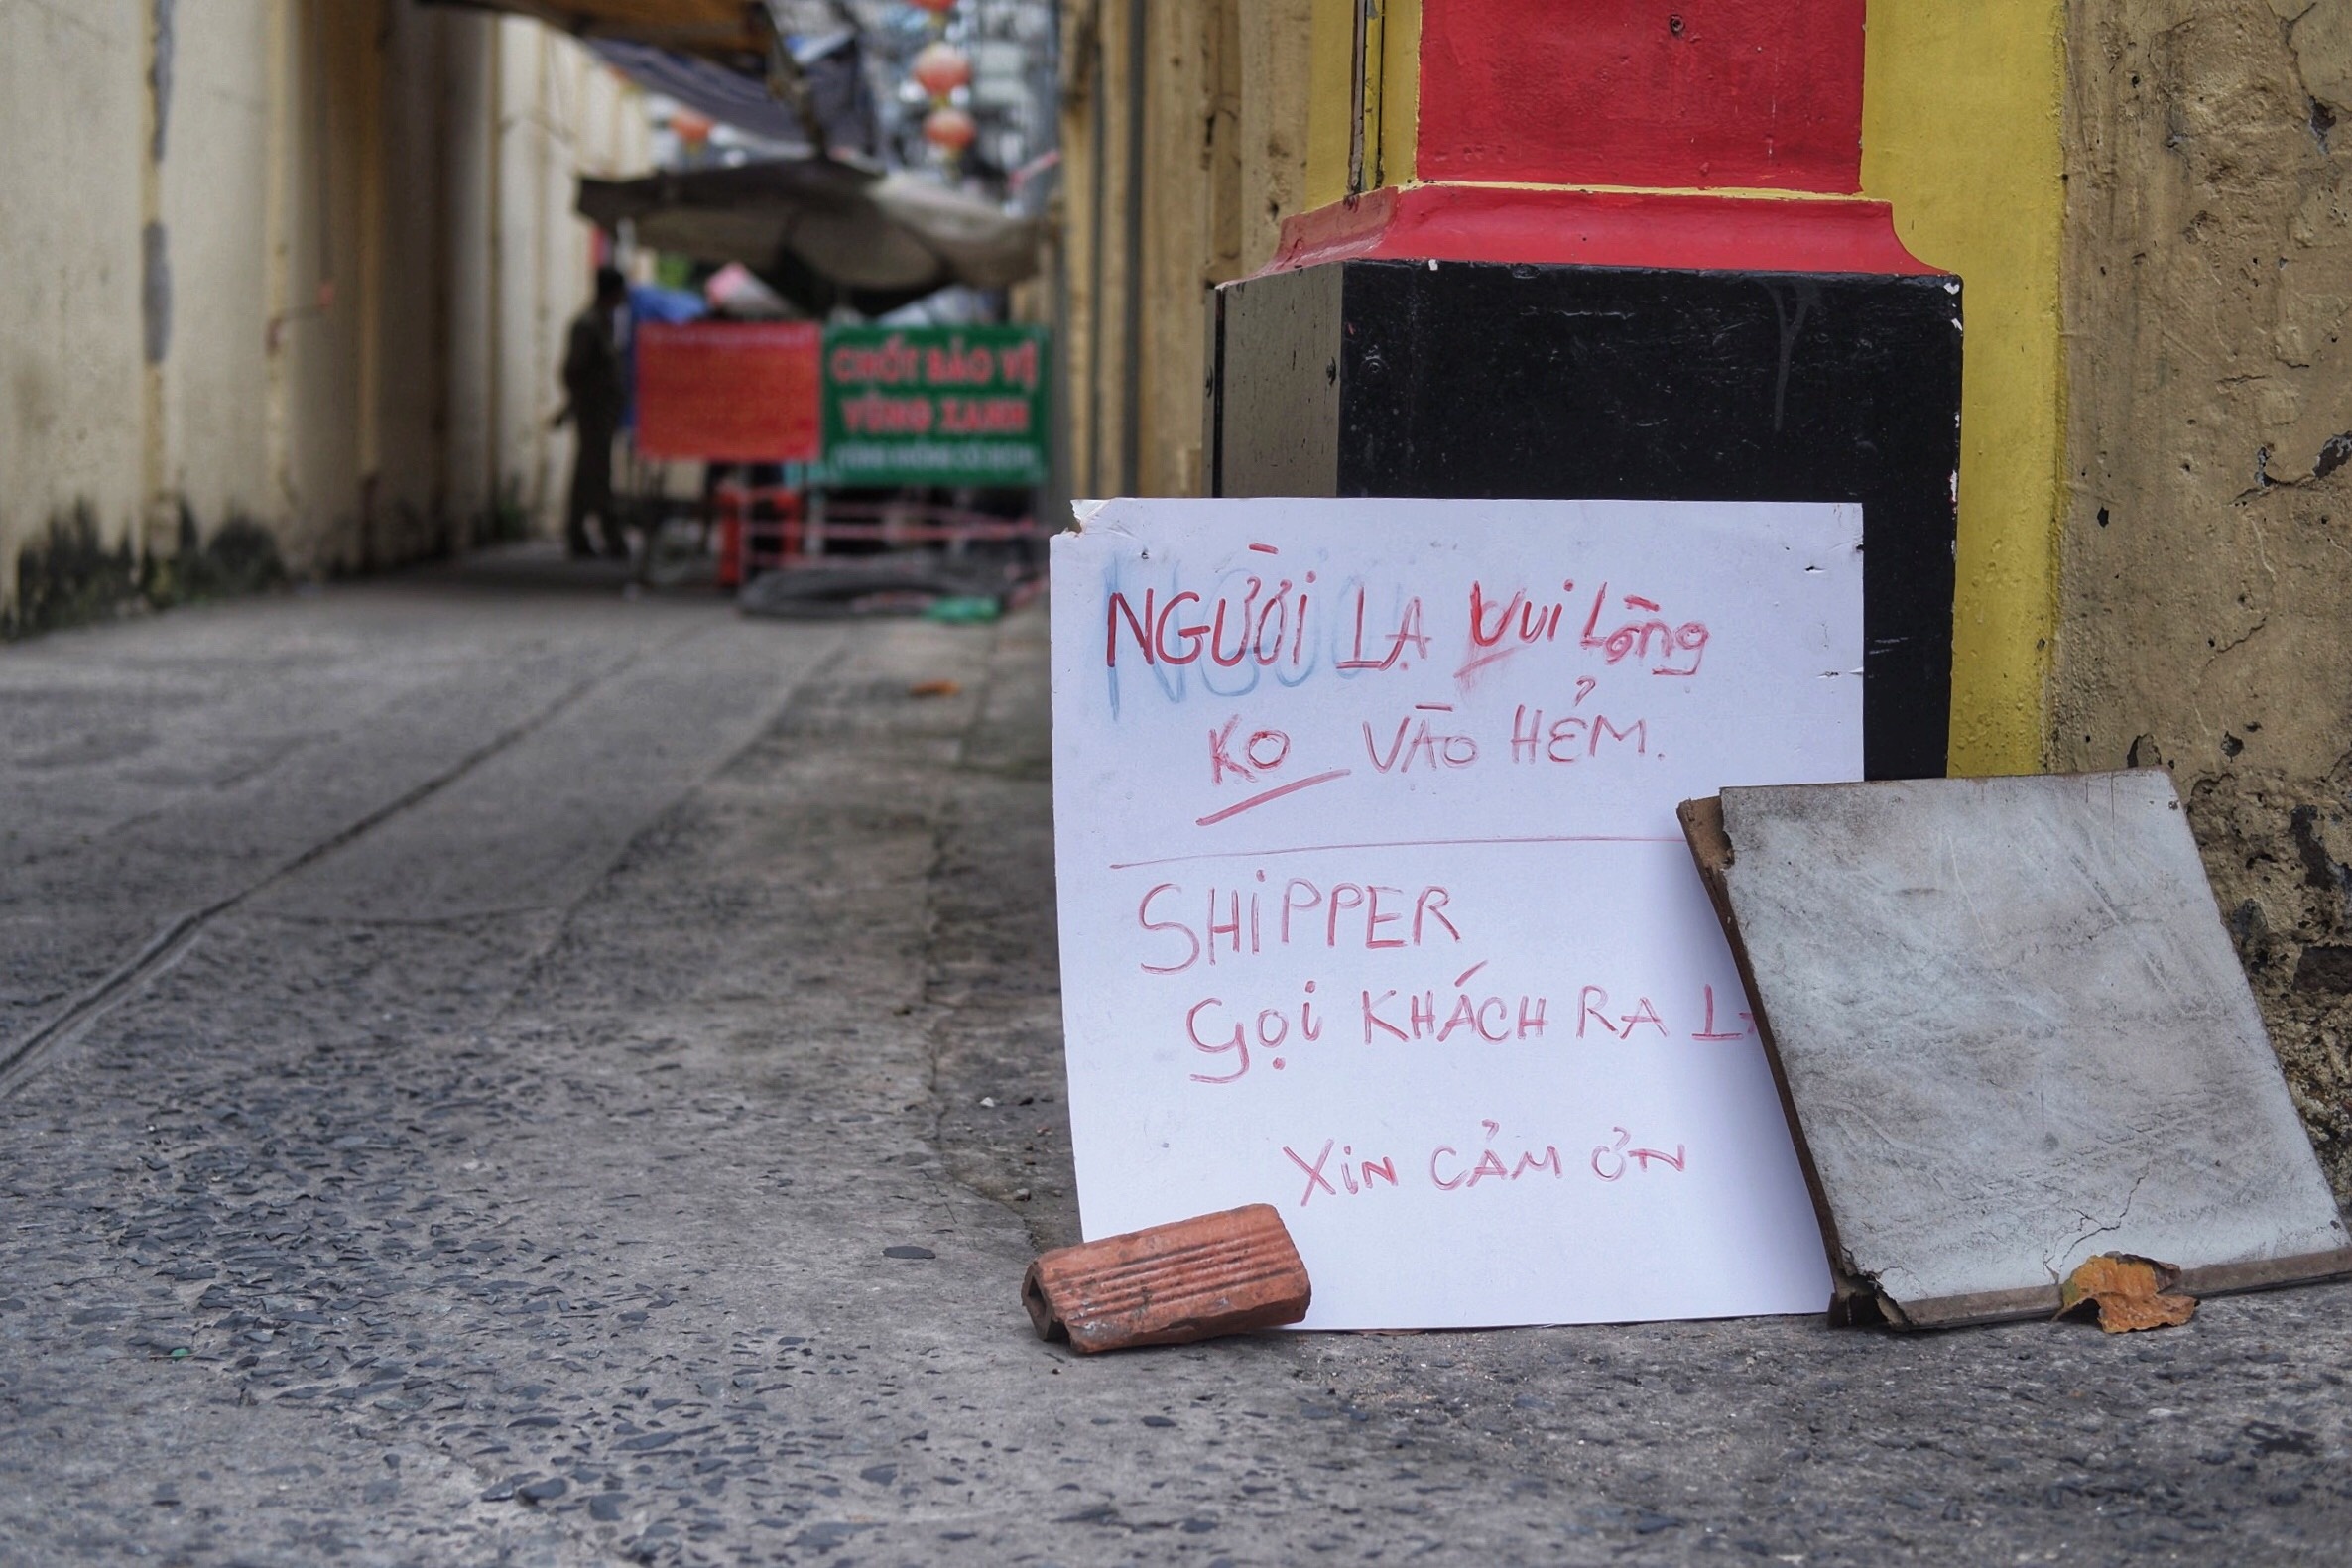 CHỐT BẢO VỆ
VÙNG XANH
NGƯỜI LẠ VUi Lòng
KO VÀO HẺM.
SHiPPER
Gọi KHÁCH RA
XiN CẢM ƠN